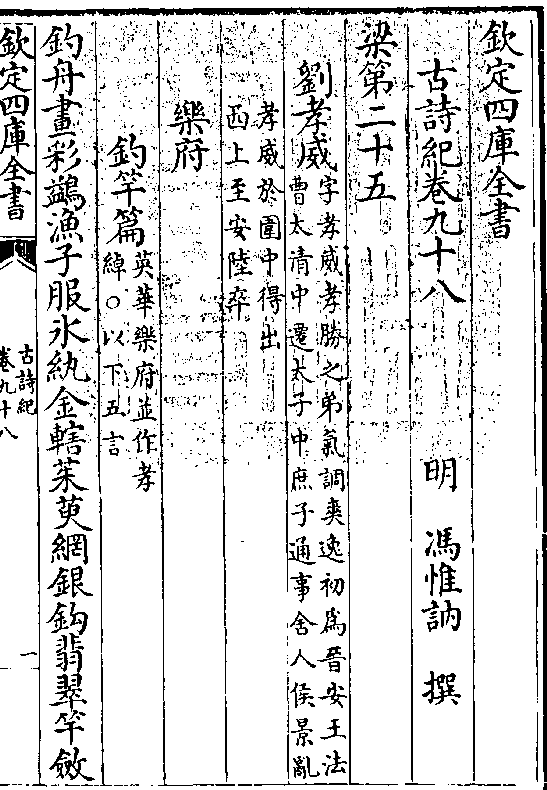 欽定四庫全書
古詩紀卷九十八
明 馮惟訥 撰
梁第二十五
劉孝威字孝威孝勝之弟氣調爽逸初為晉安王法
曹太清中遷太子中庶子通事舍人侯景亂
孝威於圍中得出
西上至安陸卒
樂府
釣竿篇英華樂府並作孝
綽○以下五言
釣舟畫彩鷁漁子服氷紈金轄茱萸網銀鈎翡翠竿斂
欽定四庫全書
古詩紀
卷九十八
一